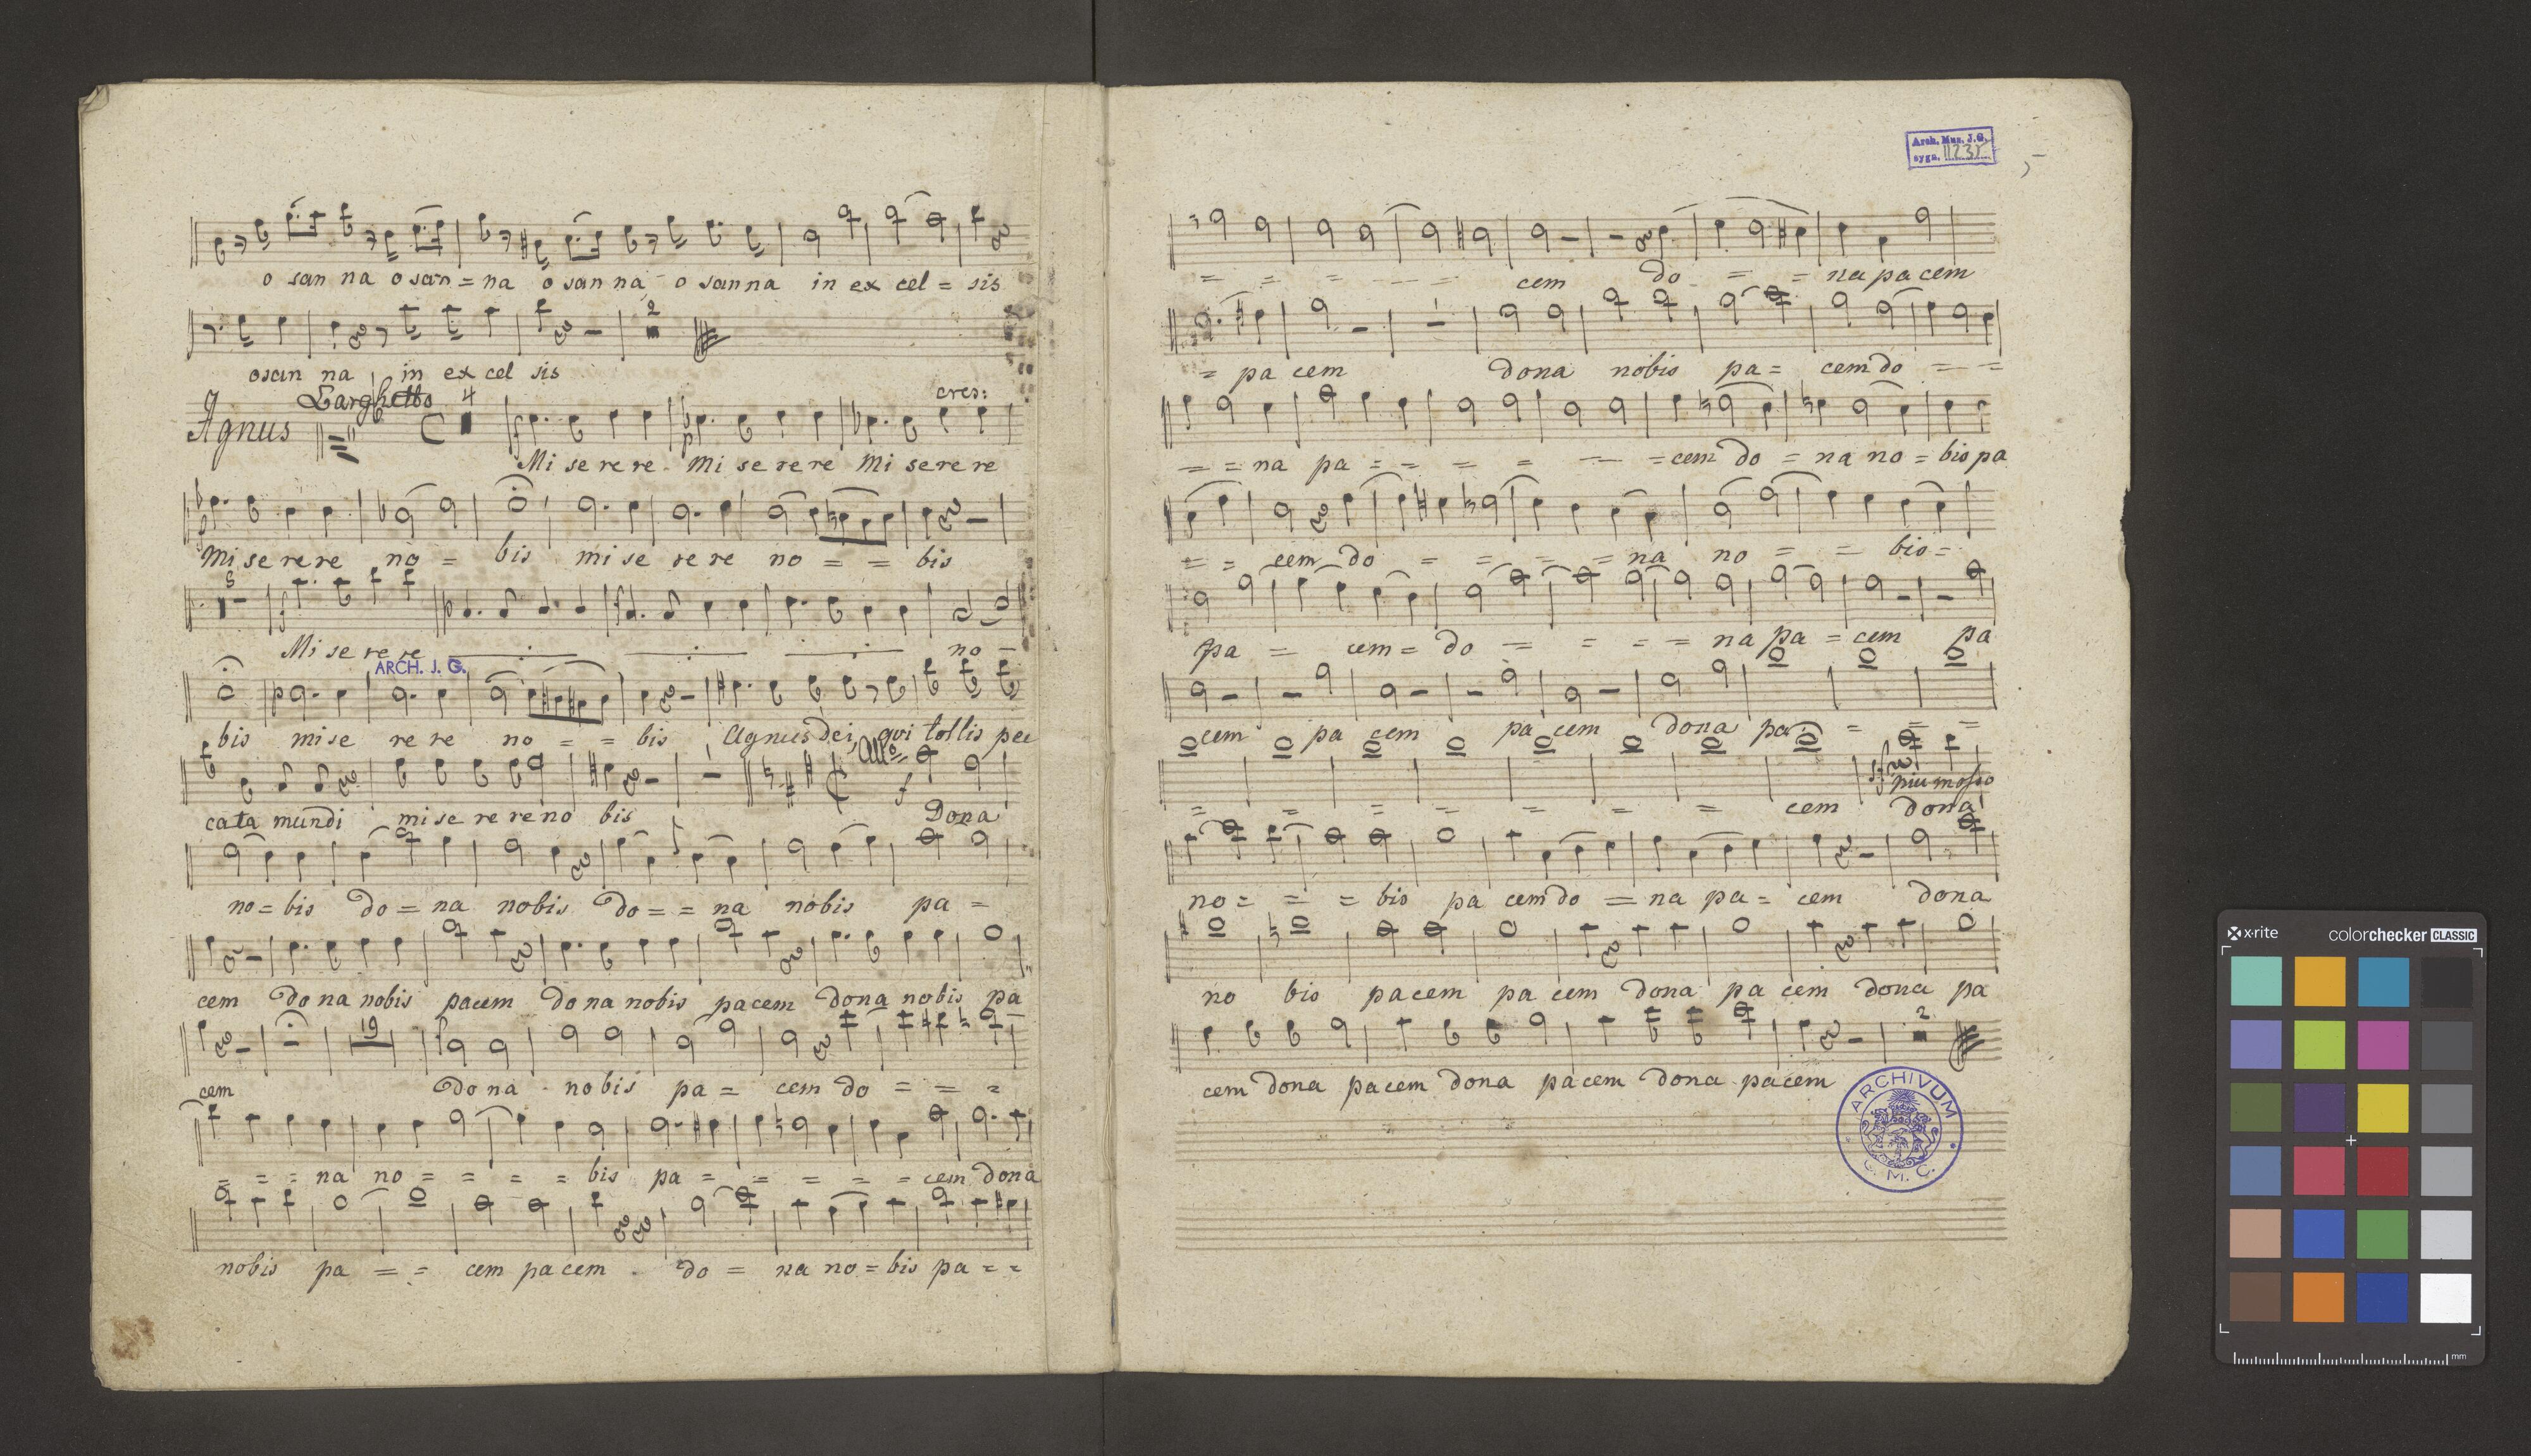 o san na o san = na o san na o san na in ex cel = sis
2
osan na in ex cel sis
Larghetto 4 cres:
Agnus Mi se re re Mi se re re Mi se re re
Mi se re re no = bis mi se re re no = = bis
Mi se re re no =
ARCH. J. G.
bis mi se re re no = = bis Agnus Dei, qui tollis pec
All:o
cata mundi mi se re re no bis Dona
no = bis do = na nobis do = = na nobis pa =
cem Do na nobis pacem do na nobis pacem dona nobis pa
19
cem Do na no bis pa = cem do = = =
= = = na no = = = = bis pa = = = = = cem dona
nobis pa = = cem pa cem do = na no = bis pa = =
Arch. Mus. J. G.
sygn.
= = = cem do = = na pa cem
= pa cem dona nobis pa = cem do = =
= = na pa = = = = = = cem do = na no = bis pa
= = cem do = = = = na no = = bis =
pa = cem = do = = = = na pa = cem pa
cem pa cem pa cem dona pa = = =
piu mosso
= = = = = = = cem dona
no = = = bis pa cem do = na pa = cem dona
no bis pa cem pa cem dona pa cem dona pa
2
cem dona pa cem dona pa cem dona pa cem
ARCHIVUM
C. M. C.
x·rite colorchecker CLASSIC
mm